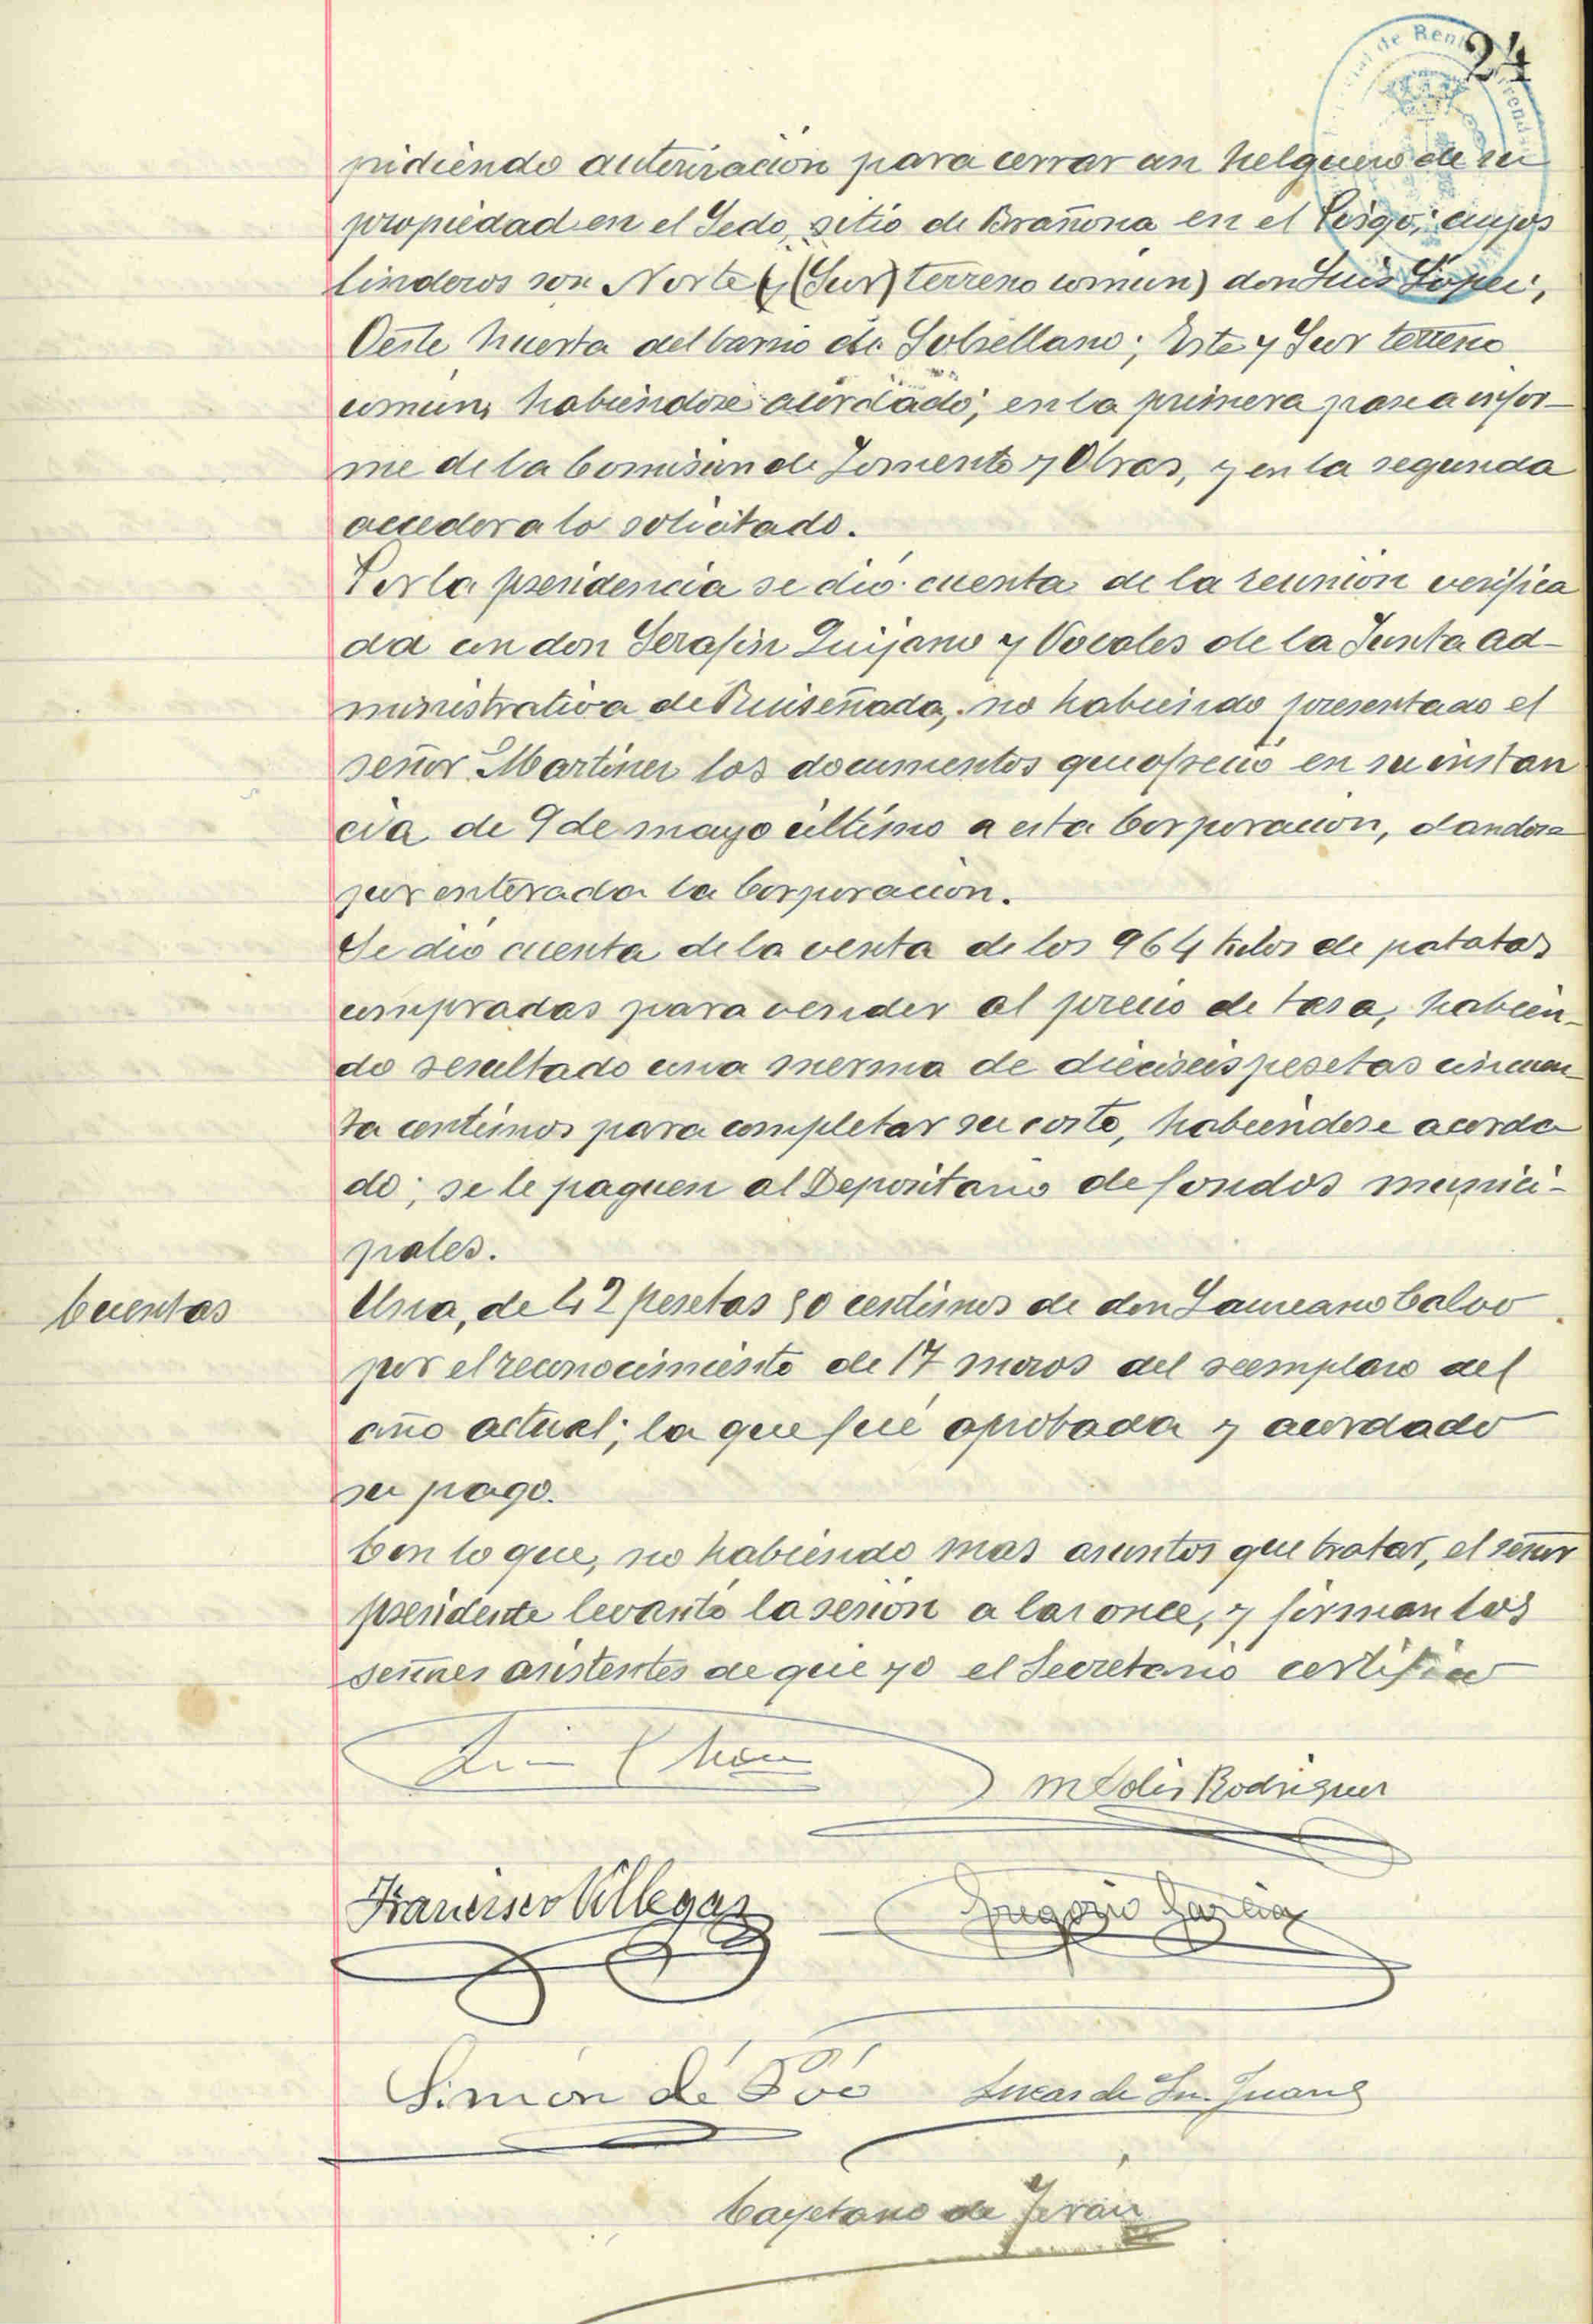 24
pidiendo autorización para cerrar un helguero de su
propiedad en el Tedo, sitio de Brañona en el cuyos
linderos son Norte (y (Sur) terreno común) don Luis López,
Oeste huerta del barrio de Sobrellano; Este y Sur terreno
común, habiéndose acordado; en la primera pase a infor-
me de la Comisión de Fomento y Obras, y en la segunda
acceder a lo solicitado.
Por la presidencia se dió cuenta de la reunión verifica
da con don Serafín Quijano y Vocales de la Junta ad-
ministrativa de Ruiseñada, no habiendo presentado el
señor Martinez los documentos que ofreció en su instan
cia de 9 de mayo último a esta Corporación, dandose
por enterada la Corporación.
Se dió cuenta de la venta de los 964 kilos de patatas
compradas para vender al precio de tasa, habien-
do resultado una merma de dieciseis pesetas cincuen-
ta centimos para completar su costo, habiendose acorda
do; se le paguen al Depositario de fondos munici-
pales.
Cuentas
Una, de 42 pesetas 50 centimos de don Laureano Calvo
por el reconocimiento de 17 mozos del reemplazo del
año actual; la que fué aprobada y acordado
su pago.
Con lo que, no habiendo mas asuntos que tratar, el señor
presidente levantó la sesión a las once, y firman los
señores asistentes de que yo el Secretario certifico
M Solis Rodriguez
Francisco Villegas
Gregorio García
Simón de Póo
Lucas de Sn. Juan
Cayetano de Terán